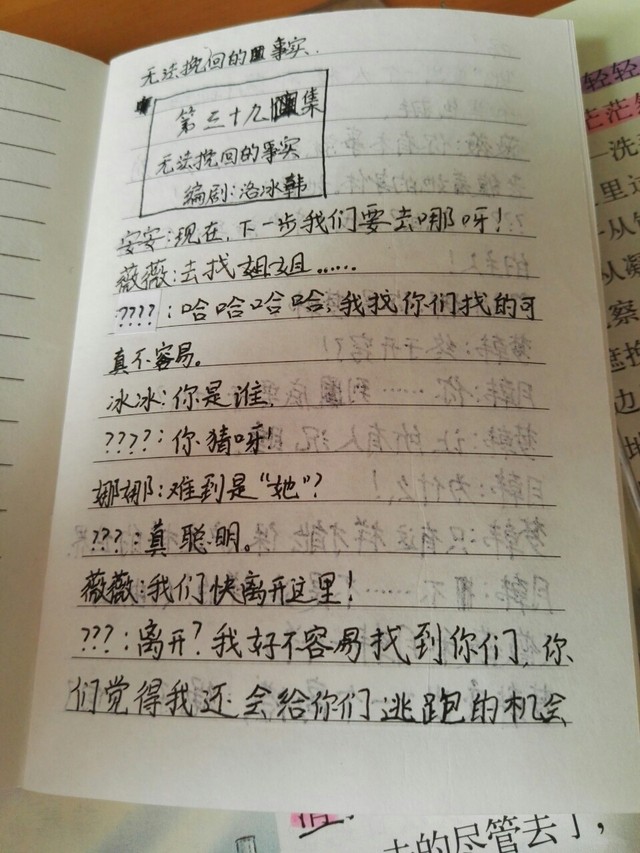 无法挽回的事实.
第三十九集
无法挽回的事实
编剧:洛冰韩
安安:现在,下一步我们要去哪呀!
薇薇:去找姐姐……
????:哈哈哈哈,我找你们找的可
真不容易。
冰冰:你是谁.
????:你猜呀!
娜娜:难到是“她”?
???:真聪明。
薇薇:我们快离开这里!
???:离开?我好不容易找到你们,你
们觉得我还会给你们逃跑的机会
轻轻
茫茫
洗
里过
从
从凝
察
边
去的尽管去了,